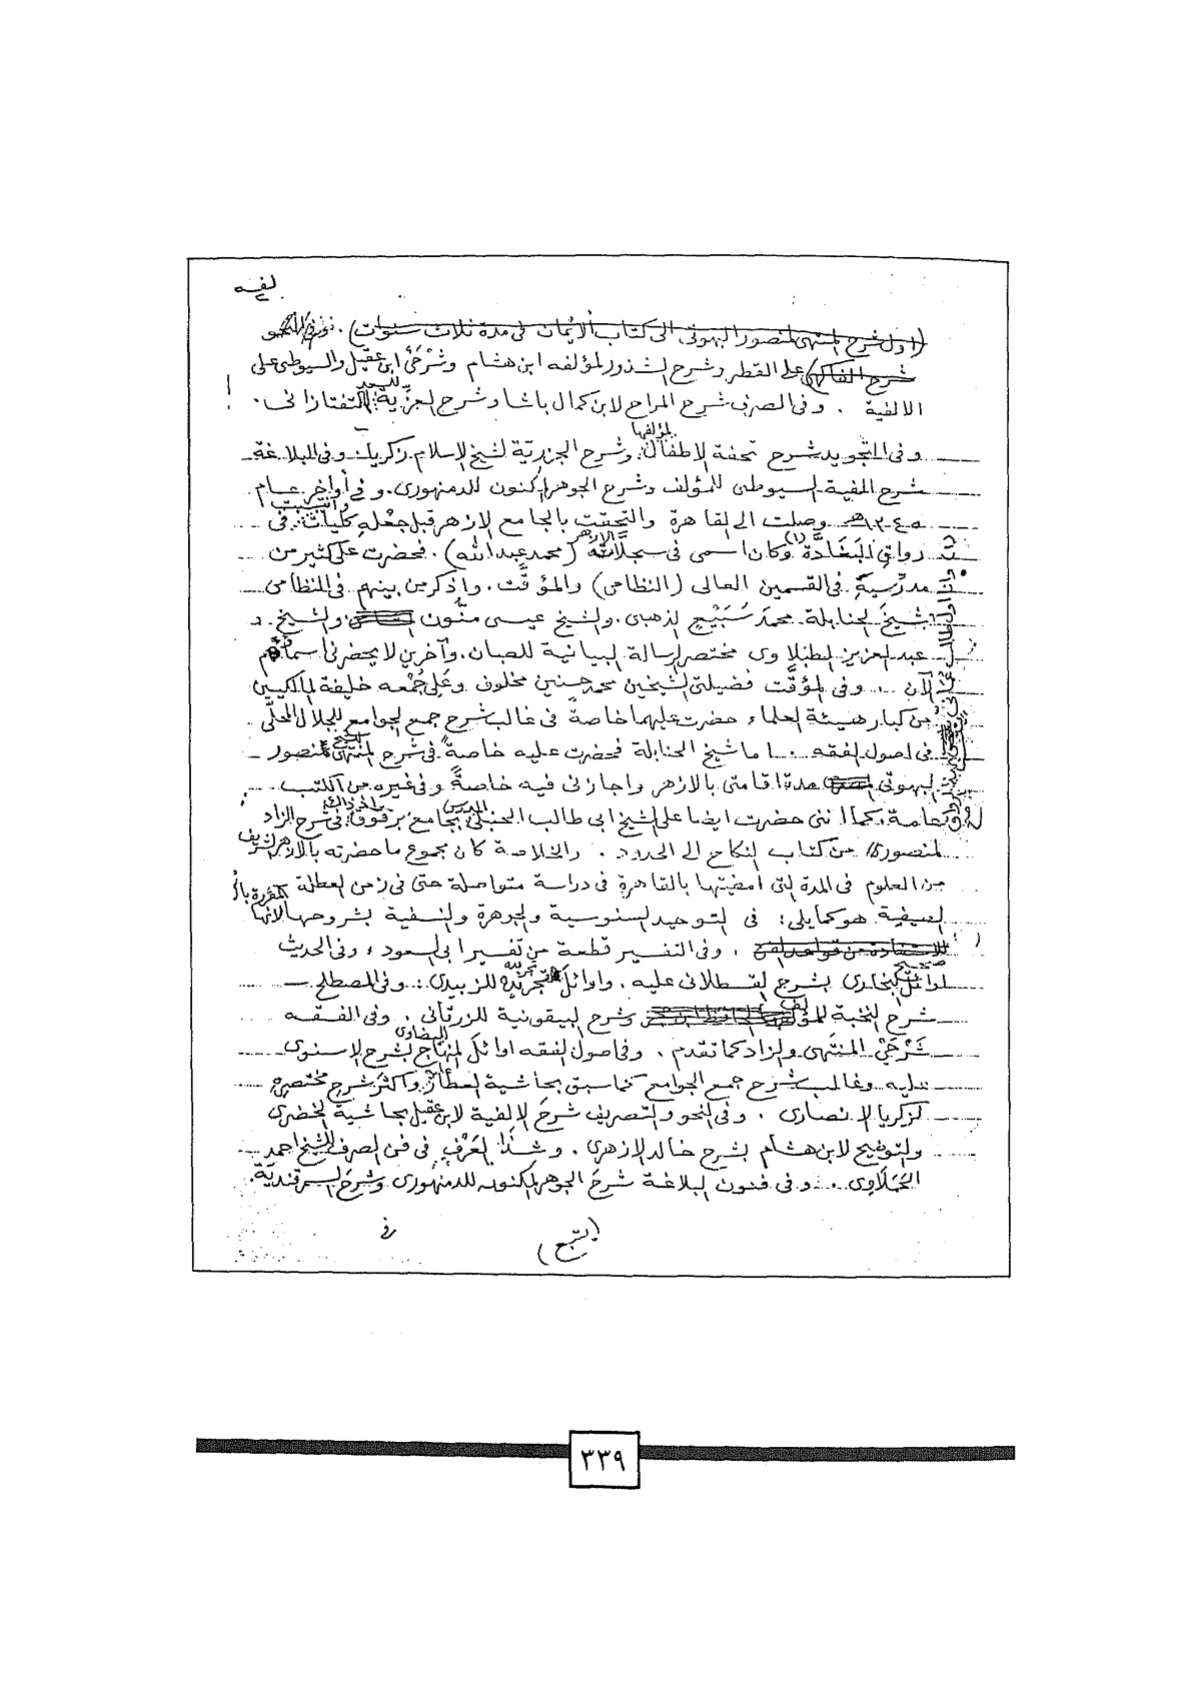 (اول شرح المنتهى لمنصور البهوتى الى كتاب الأيمان فى مدة ثلاث سنوات). وفى النحو
شرح الفاكهى على القطر وشرح الشذور لمؤلفه ابن هشام وشرحَىْ ابن عقيل والسيوطى على
الالفية . وفى الصرف شرح المراح لابن كمال باشا وشرح العزّية للسعد التفتازانى .
وفى التجويد شرح تحفة الاطفال لمؤلفها وشرح الجزرية لشيخ الاسلام زكريا . وفى البلاغة
شرح الفية السيوطى للمؤلف وشرح الجوهر المكنون للدمنهورى . وفى أواخر عام
١٣٤٥هـ وصلت الى القاهرة والتحقت بالجامع الازهر قبل جعله كليات وانتسبت فى
رواق البغادّة (١) وكان اسمى فى سجلّات الازهر (محمد عبد الله) . فحضرت على كثير من
مدرّسيه فى القسمين العالى (النظامى) والمؤقّت . واذكر من بينهم فى النظامى
شيخَ الحنابلة محمد سَبَيْع الذهبى . والشيخ عيسى منّون والشيخ
عبد العزيز المطبلاوى مختصر الرسالة البيانية للصبان . وآخرين لا يحضرنى اسماؤهم
الآن .. وفى المؤقّت فضيلتى الشيخين محمد حسنين مخلوف وعَلِى جُمْعه خليفة المالكيين
من كبار هيئة العلماء حضرت عليهما خاصةً فى غالب شرح جمع الجوامع للجلال المحلّى
فى اصول الفقه . اما شيخ الحنابلة فحضرت عليه خاصةً فى شرح المنتهى للشيخ منصور
البهوتى مدة اقامتى بالازهر واجازنى فيه خاصةً وفى غيره من الكتب
عامة . كما اننى حضرت ايضا على الشيخ ابى طالب الحنبلى المدرس بجامع برقوق اذ ذاك فى شرح الزاد
لمنصور من كتاب النكاح الى الحدود . والخلاصة كان مجموع ما حضرته بالازهر الشريف
من العلوم فى المدة التى امضيتها بالقاهرة فى دراسة متواصلة حتى فى زمن العطلة
الصيفية هو كما يلى : فى التوحيد السنوسية والجوهرة والنسفية بشروحها
. وفى التفسير قطعة من تفسير ابى السعود ، وفى الحديث
اوائل صحيح البخارى بشرح القسطلانى عليه . واوائل تجريده للزبيدى . وفى المصطلح
شرح النخبة وشرح البيقونية للزرقانى . وفى الفقه
شَرْحَىْ المنتَهى والزاد كما تقدم . وفى اصول الفقه اوائلَ المنهاج للبيضاوى بشرح الاسنوى
عليه وغالب شرح جمع الجوامع كما سبق بحاشية العطار واكثرَ شرح مختصره
لزكريا الانصارى . وفى النحو والتصريف شرحَ الالفية لابن عقيل بحاشية الخضرى
والتوضيح لابن هشام بشرح خالد الازهرى . وشذا العَرْف فى فن الصرف للشيخ احمد
الحَمَلَاوى . وفى فنون البلاغة شرحَ الجوهر المكنون للدمنهورى وشرحَ السمرقنديّة.
(يتبع)
فى
٣٣٩